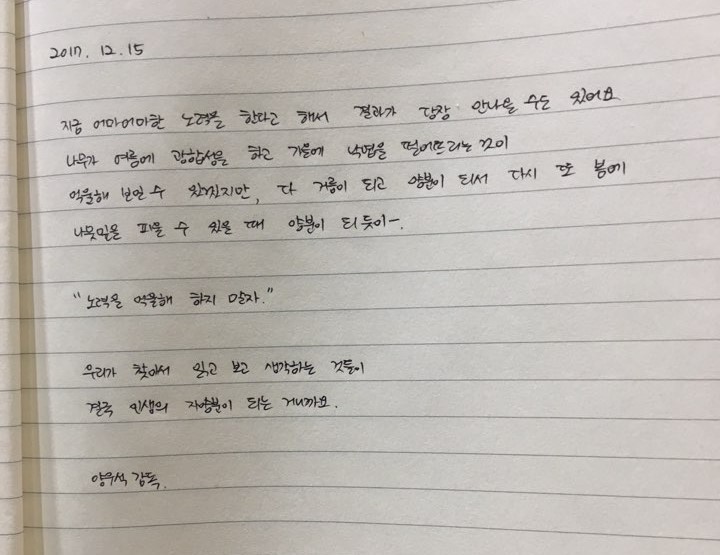 2017. 12. 15
지금 어마어마한 노력을 한다고 해서 결과가 당장 안나올 수도 있어요
나무가 여름에 광합성을 하고 가을에 낙엽을 떨어뜨리는 것이
억울해 보일 수 있겠지만, 다 거름이 되고 양분이 되서 다시 또 봄에
나뭇잎을 피울 수 있을 때 양분이 되듯이-.
"노력을 억울해 하지 말자."
우리가 찾아서 읽고 보고 생각하는 것들이
결국 인생의 자양분이 되는 거니까요.
양우석 감독.